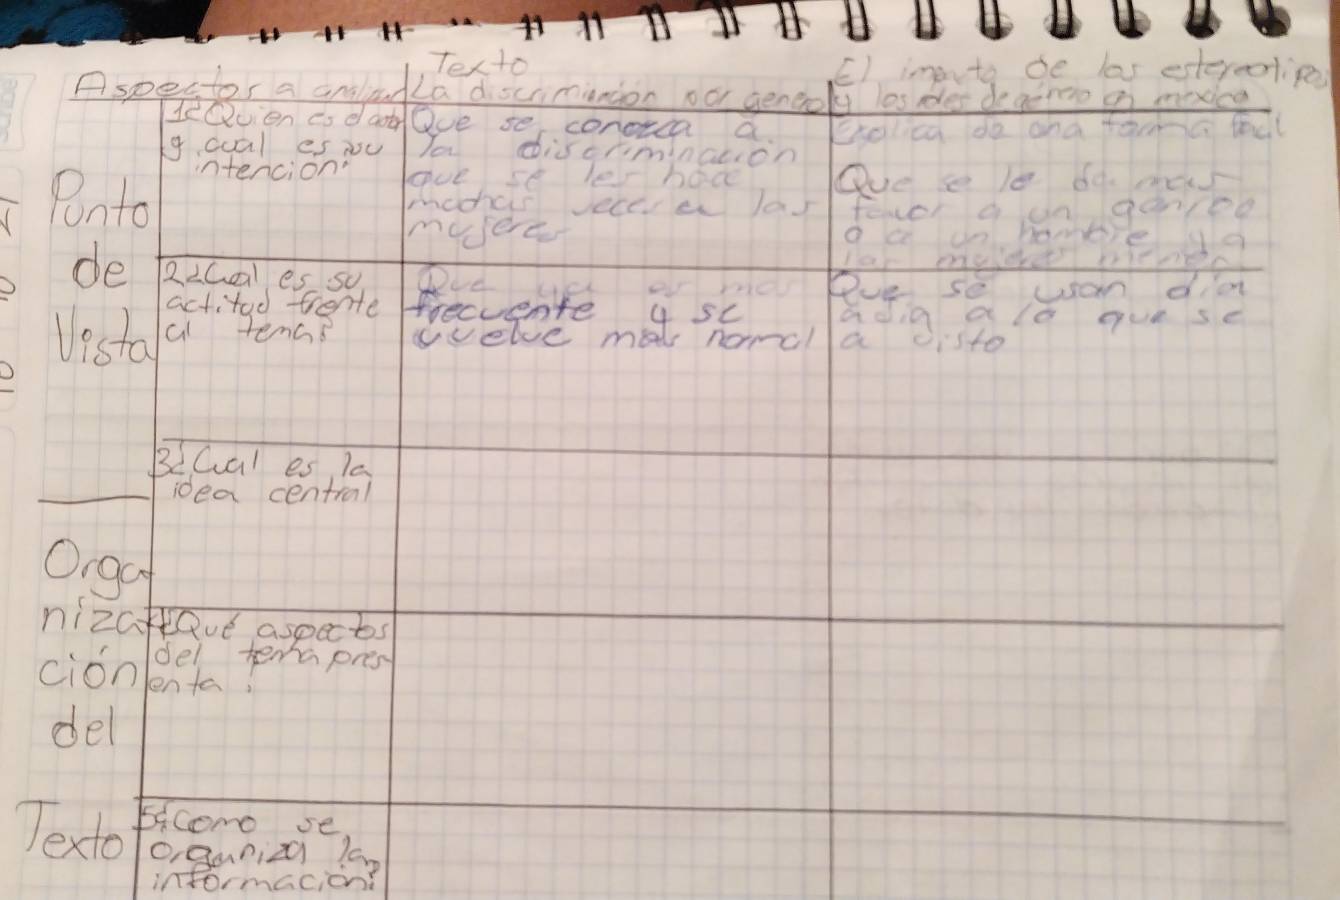 Texto
Aspectos a analizar
La discriminación por genero
El impacto de las estereotipos
y los roles de género en mexico
Punto
de
Vista
1¿Quien es el autor
y cual es su
intención?
Que se conozca a
la discriminación
que se les hace
muchas veces a las
mujeres
Explica de una forma facil
Que se le da mas
favor a un genero
o a un hombre y a
las mujeres menos
2¿Cual es su
actitud frente
al tema?
Que ya es mas
frecuente y se
vuelve mas normal
Que se usan dia
a dia a lo que se
a visto
3¿Cual es la
idea central
Orga
niza
ción
del
Texto
4¿Qué aspectos
del tema pres
enta?
5¿Como se
organiza la
información?